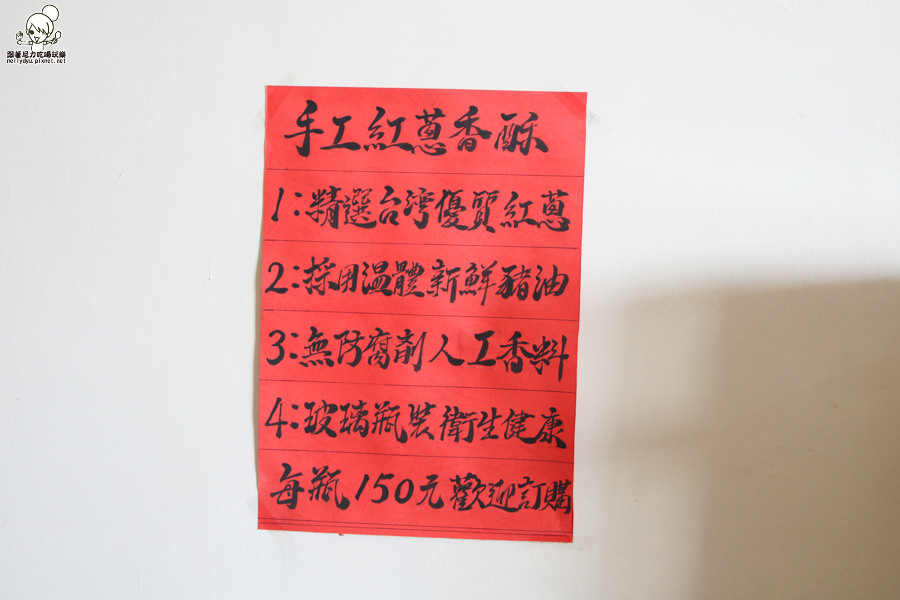 跟著尼力吃喝玩樂
nellydyu.pixnet.net
手工紅蔥香酥
1:精選台湾優質紅蔥
2:採用温體新鮮豬油
3:無防腐劑人工香料
4:玻璃瓶裝衛生健康
每瓶150元歡迎訂購